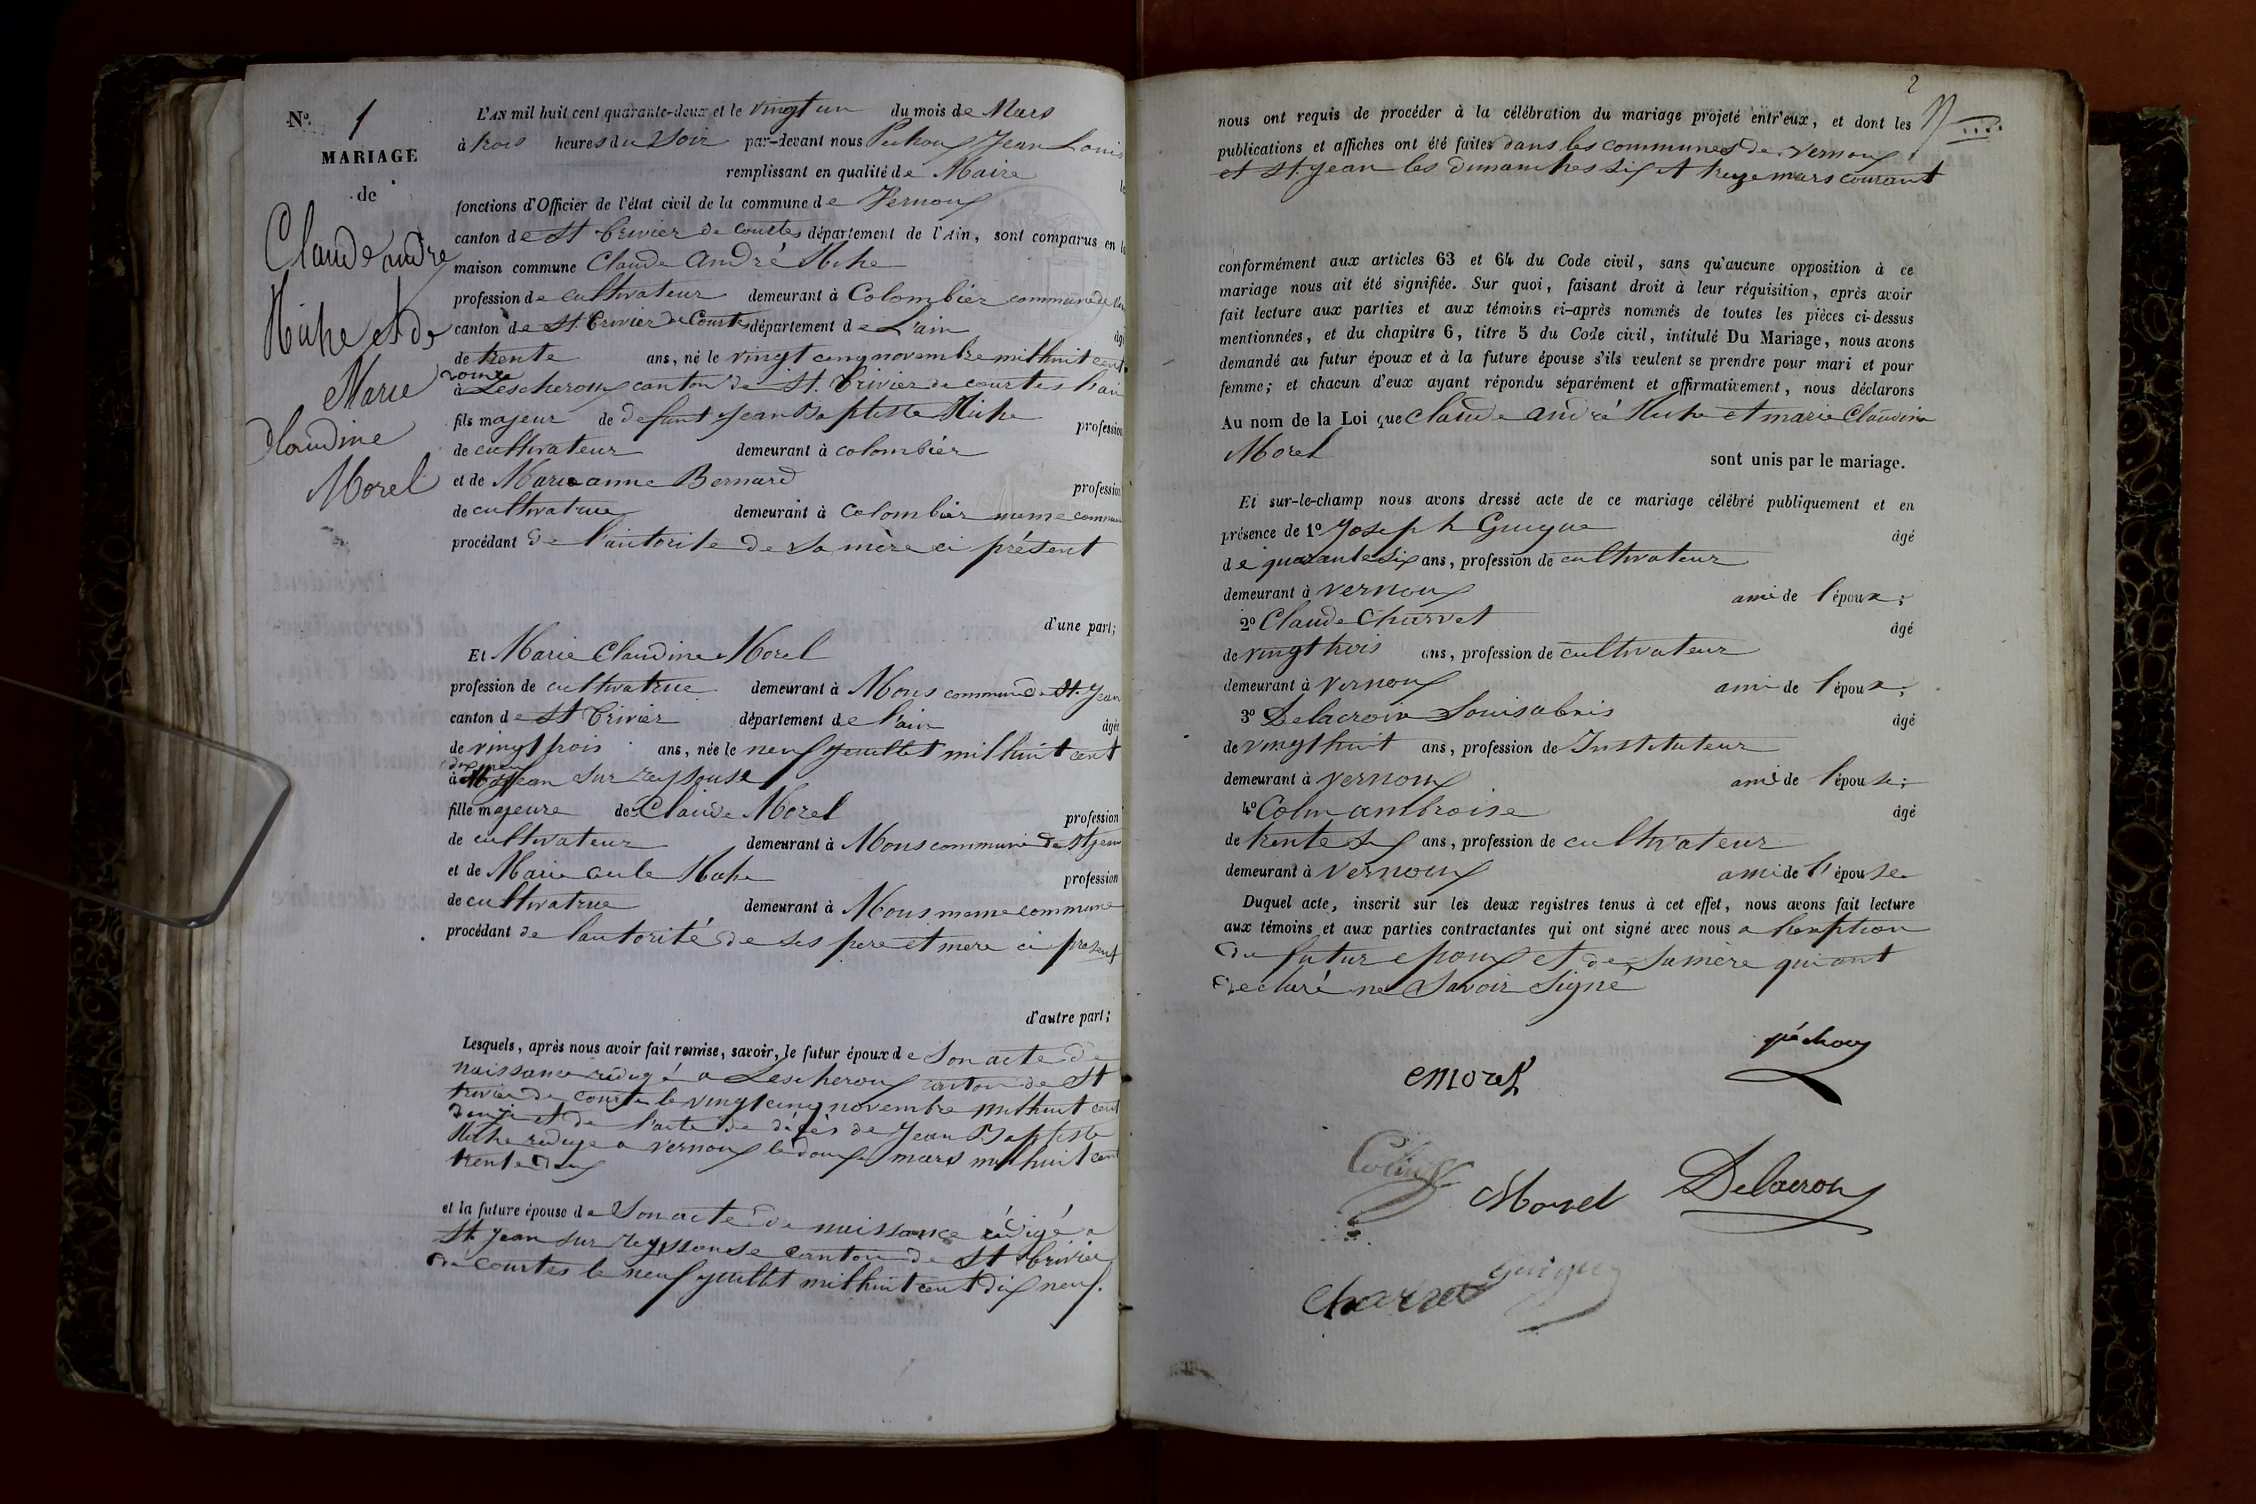 N.° 1
MARIAGE
de
Claude andré
Niche et de
Marie
Claudine
Morel
L'AN mil huit cent quarante-deux et le vingt un du mois de Mars
à trois heures du Soir par-devant nous Pechoux Jean Louis
remplissant en qualité de Maire
fonctions d'Officier de l'état civil de la commune de Vernoux
canton de St Trivier de Courtes département de l'Ain, sont comparus en la
maison commune Claude André Niche
profession de cultivateur demeurant à Colombier commune de
canton de St. Trivier de Courtes département de L'ain
de trente ans, né le vingt cinq novembre mil huit cent
douze
à Lescheroux canton de St. Trivier de courtes l'ain
fils majeur de defunt Jean Baptiste Niche profession
de cultivateur demeurant à colombier
et de Marieanne Bernard profession
de cultivatrice demeurant à Colombier meme commune
procédant de l'autorite de sa mère ci présent
d'une part;
Et Marie Claudine Morel
profession de cultivatrice demeurant à Mons commune de St. Jean
canton de St Trivier département de l'ain âgée
de vingt trois ans, née le neuf juillet mil huit cent
dix neuf
à St Jean sur reyssouse
fille majeure de Claude Morel profession
de cultivateur demeurant à Mons commune de St jean
et de Marie Niche profession
de cultivatrice demeurant à Mons meme commune
procédant de l'autorité de ses pere et mere ci présent
d'autre part;
Lesquels, après nous avoir fait remise, savoir, le futur époux de Son acte de
naissance rédigé a Lescheroux canton de St
trivier de courtes le vingt cinq novembre mil huit cent
douze et de l'acte de décès de Jean Baptiste
Niche redigé a vernoux le douze mars mil huit cent
trente deux
et la future épouse de Son acte de naissance rédigé a
St. Jean sur reyssouse canton de St Trivier
de courtes le neuf juillet mil huit cent dix neuf.
2
nous ont requis de procéder à la célébration du mariage projeté entr'eux, et dont les
publications et affiches ont été faites dans les communes de vernoux
et St. Jean les dimanches six et treize mars courant
conformément aux articles 63 et 64 du Code civil, sans qu'aucune opposition à ce
mariage nous ait été signifiée. Sur quoi, faisant droit à leur réquisition, après avoir
fait lecture aux parties et aux témoins ci-après nommés de toutes les pièces ci-dessus
mentionnées, et du chapitre 6, titre 5 du Code civil, intitulé Du Mariage, nous avons
demandé au futur époux et à la future épouse s'ils veulent se prendre pour mari et pour
femme; et chacun d'eux ayant répondu séparément et affirmativement, nous déclarons
Au nom de la Loi que claude andré Niche et marie Claudine
Morel sont unis par le mariage.
Et sur-le-champ nous avons dressé acte de ce mariage célébré publiquement et en
présence de 1° Joseph Guigue âgé
de quarante six ans, profession de cultivateur
demeurant à vernoux ami de l'époux;
2° Claude Charvet âgé
de vingt trois ans, profession de cultivateur
demeurant à vernoux ami de l'époux;
3° Delacroix Louis âgé
de vingt huit ans, profession de Instituteur
demeurant à vernoux ami de l'épouse;
4° Colin ambroise âgé
de trente six ans, profession de cultivateur
demeurant à vernoux ami de l'épouse
Duquel acte, inscrit sur les deux registres tenus à cet effet, nous avons fait lecture
aux témoins et aux parties contractantes qui ont signé avec nous a
du futur epoux et de sa mère qui ont
déclaré ne Savoir Signé
péchoux
cmorel
Colin
Morel
Delacroix
Charvet
guigue